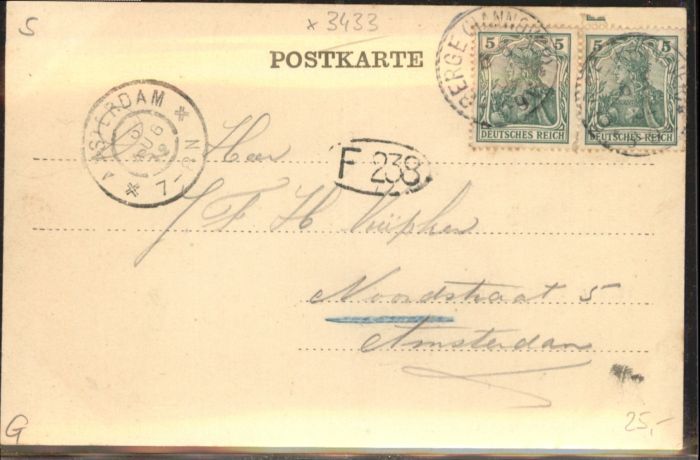 S
x 3433
POSTKARTE
5 5
5 5
DEUTSCHES REICH
DEUTSCHES REICH
BERGE (HANNOVER)
AMSTERDAM
7-8N
F 238
Heer
J F H
Noordstraat 5
Amsterdam
G
25,-